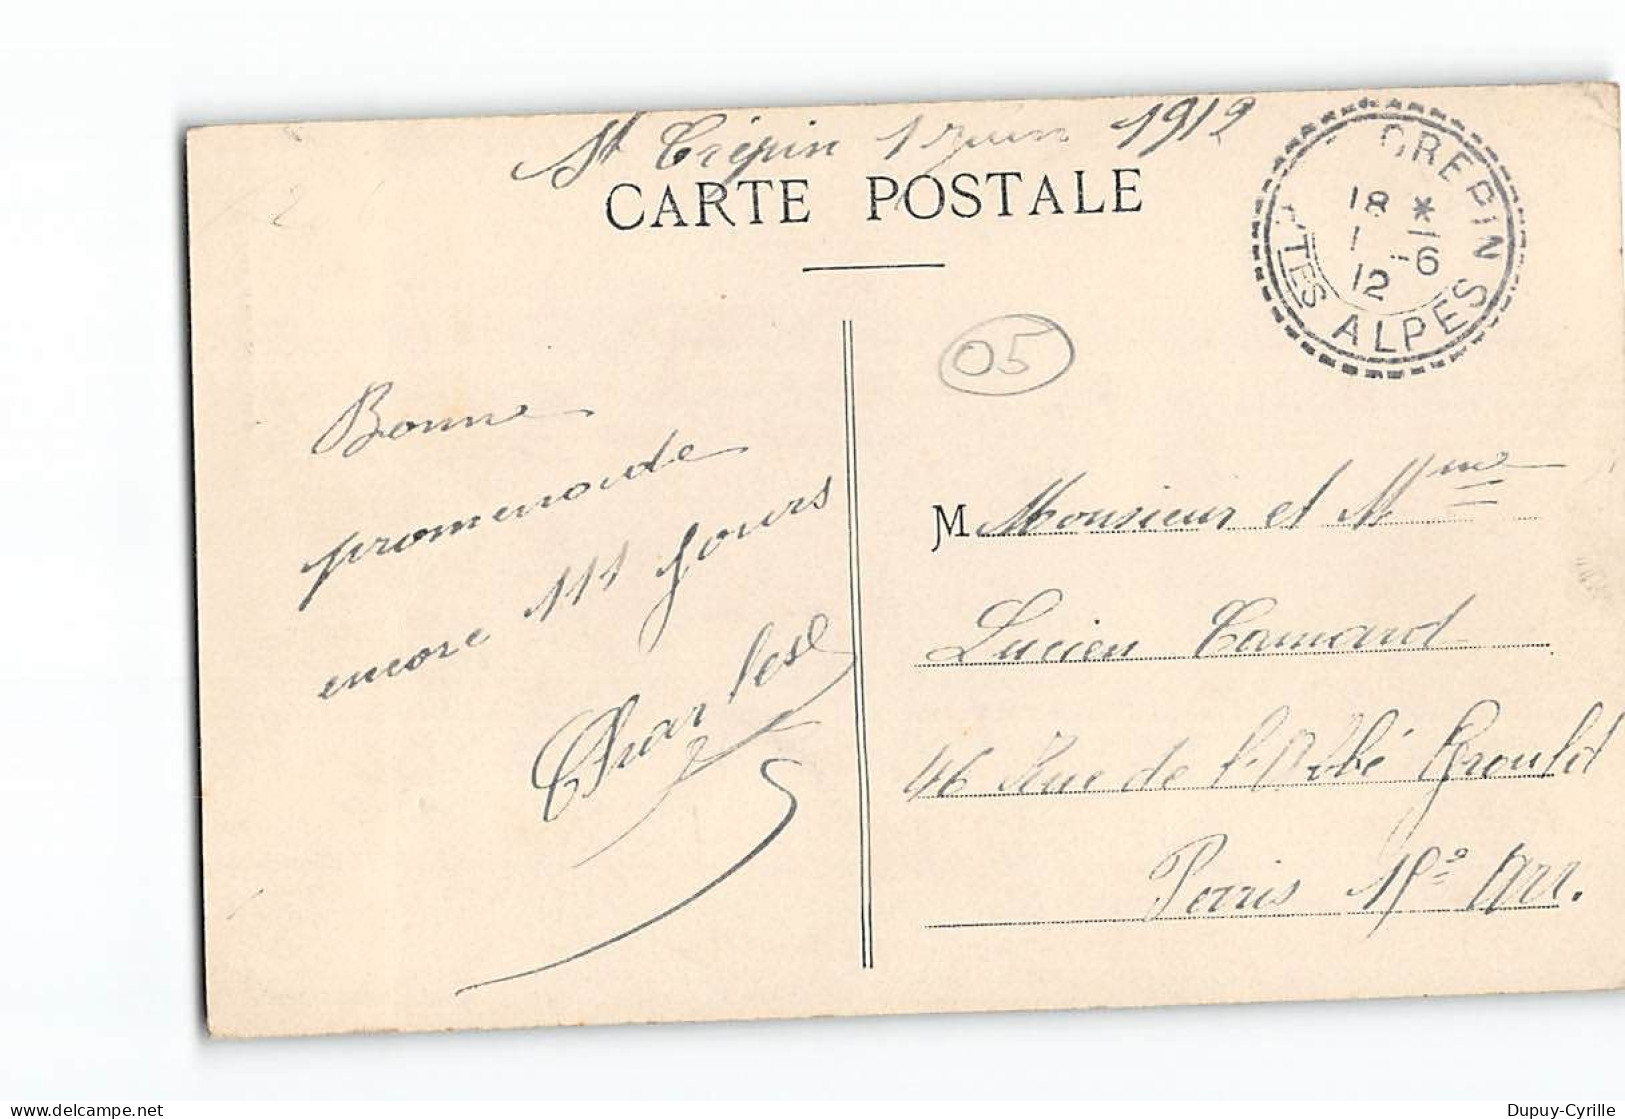 St Crépin 1 Juin 1912
CARTE POSTALE
CREPIN
18 *
1 -6
12
HTES ALPES
05
Bonne
promenade
encore 111 Jours
Charles
M Monsieur et Mme
Lucien Camard
46 Rue de l'Abbé Groult
Paris 15e Arr.
Dupuy-Cyrille